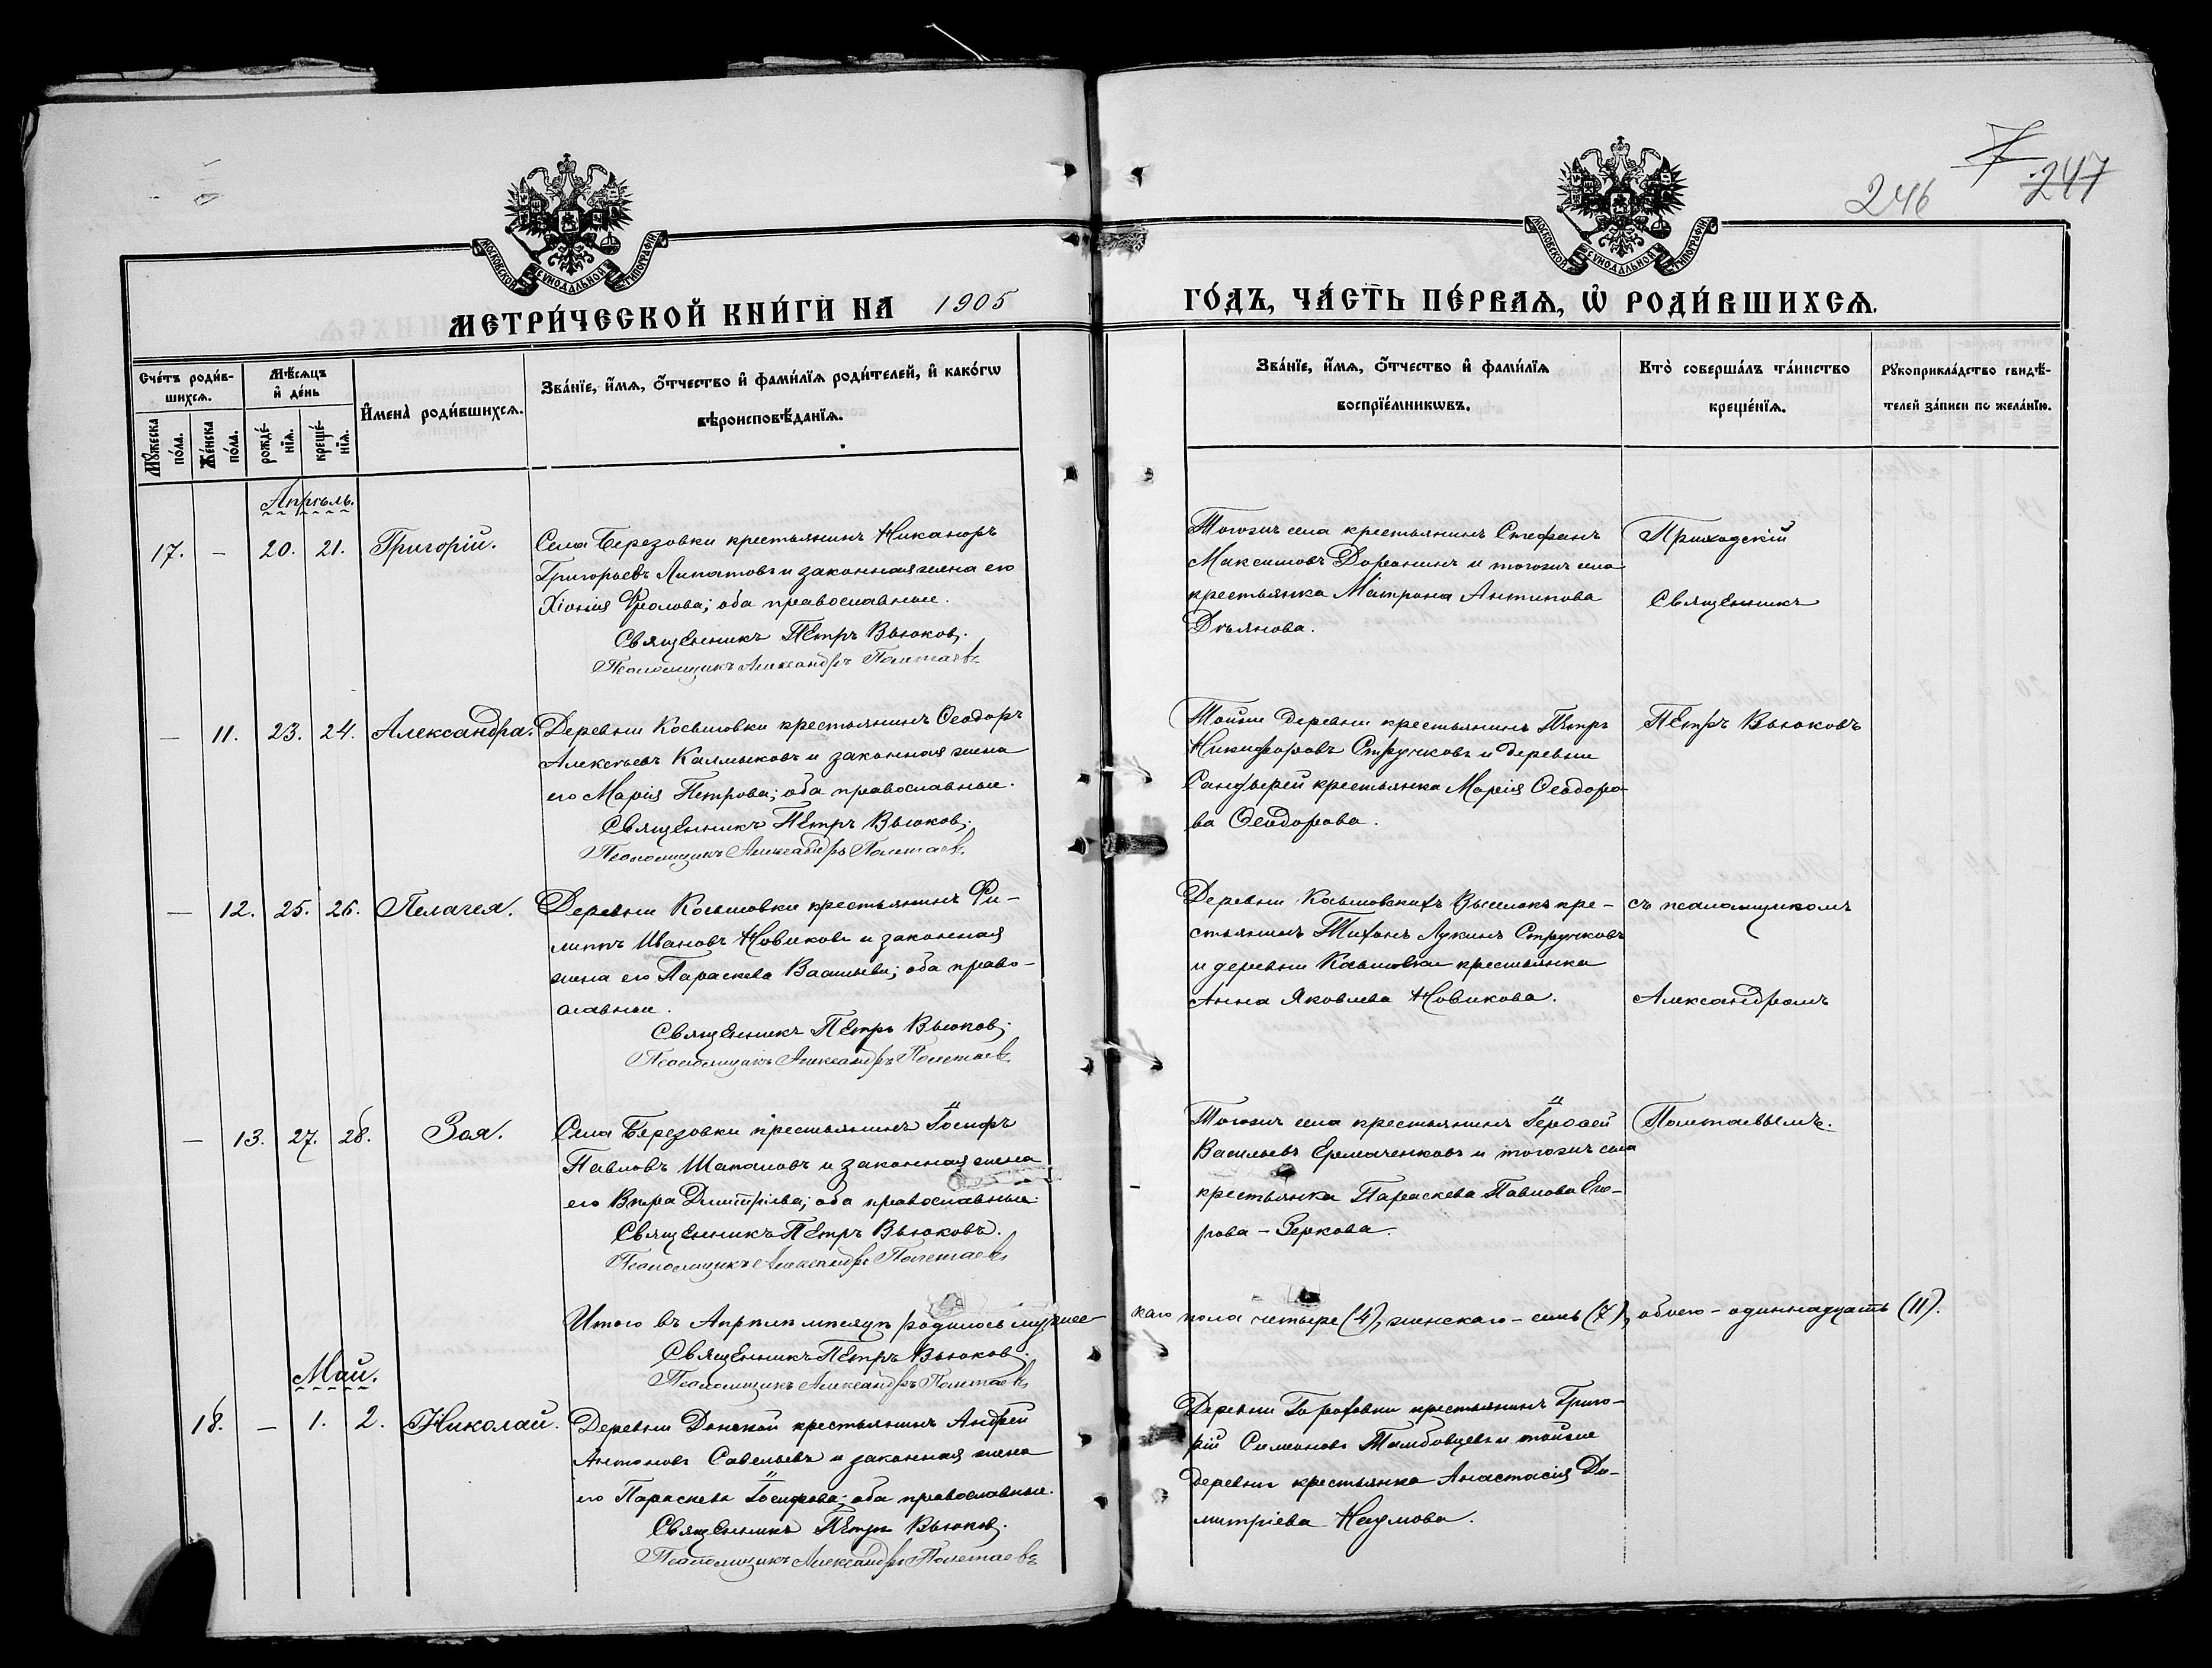 246
7
247
МОСКОВСКОЙ СѴНОДАЛЬНОЙ ТИПОГРАФІИ
МОСКОВСКОЙ СѴНОДАЛЬНОЙ ТИПОГРАФІИ
МЕТРИ́ЧЕСКОЙ КНИ́ГИ НА 1905
ГО́ДЪ, ЧА́СТЬ ПЕ́РВАѦ, Ѡ РОДИ́ВШИХСѦ.
Сче́тъ роди́в-
шихсѧ.
Мꙋ́жеска по́ла.
Же́нска по́ла.
Мѣ́сѧцъ и де́нь
рожде́-
нїѧ.
креще́-
нїѧ.
И҆мена̀ роди́вшихсѧ.
Зва́нїе, и҆́мѧ, ѻ҆́тчество и҆ фами́лїѧ роди́телей, и҆ како́гѡ
вѣроисповѣ́данїѧ.
Зва́нїе, и҆́мѧ, ѻ҆́тчество и҆ фами́лїѧ
воспрїе́мникѡвъ.
Кто̀ соверша́лъ та́инство
креще́нїѧ.
Рꙋкоприкла́дство свидѣ́-
телей за́писи по жела́нїю.
Апрѣль.
17. — 20. 21. Григорій.
Села Березовки крестьянинъ Никаноръ
Григорьевъ Липатовъ и законная жена его
Хіонія Фролова; оба православные.
Священникъ Петръ Вьюковъ.
Псаломщикъ Александръ Полетаевъ
Тогожъ села крестьянинъ Стефанъ
Максимовъ Доронинъ и тогожъ села
крестьянка Матрона Антипова
Дѣянова.
Приходскій
Священникъ
— 11. 23. 24. Александра.
Деревни Космовки крестьянинъ Ѳеодоръ
Алексѣевъ Калмыковъ и законная жена
его Марія Петрова; оба православные.
Священникъ Петръ Вьюковъ.
Псаломщикъ Александръ Полетаевъ
Тойже деревни крестьянинъ Петръ
Никифоровъ Стручковъ и деревни
крестьянка Марія Ѳеодоро-
ва Ѳеодорова.
Петръ Вьюковъ
— 12. 25. 26. Пелагея.
Деревни Космовки крестьянинъ Фи-
липпъ Ивановъ Новиковъ и законная
жена его Параскева Васильева; оба право-
славные.
Священникъ Петръ Вьюковъ.
Псаломщикъ Александръ Полетаевъ
Деревни Космовскихъ Выселокъ кре-
стьянинъ Тихонъ Лукинъ Стручковъ
и деревни Космовки крестьянка
Анна Яковлева Новикова.
съ псаломщикомъ
Александромъ
— 13. 27. 28. Зоя.
Села Березовки крестьянинъ Іосифъ
Павловъ Шаталовъ и законная жена
его Вѣра Димитріева; оба православные.
Священникъ Петръ Вьюковъ.
Псаломщикъ Александръ Полетаевъ
Тогожъ села крестьянинъ
Васильевъ Ермаченковъ и тогожъ села
крестьянка Параскева Павлова Его-
рова-Зеркова.
Полетаевымъ.
Итого въ Апрѣлѣ мѣсяцѣ родилось мужес-
каго пола четыре (4), женскаго - семь (7), обоего - одиннадцать (11).
Священникъ Петръ Вьюковъ.
Псаломщикъ Александръ Полетаевъ
Май.
18. — 1. 2. Николай.
Деревни Донской крестьянинъ Андрей
Антоновъ Савельевъ и законная жена
его Параскева Іосифова; оба православные.
Священникъ Петръ Вьюковъ.
Псаломщикъ Александръ Полетаевъ
Деревни Гороховки крестьянинъ Григо-
рій Симеоновъ Тамбовцевъ и тойже
деревни крестьянка Анастасія Ди-
митріева Наумова.